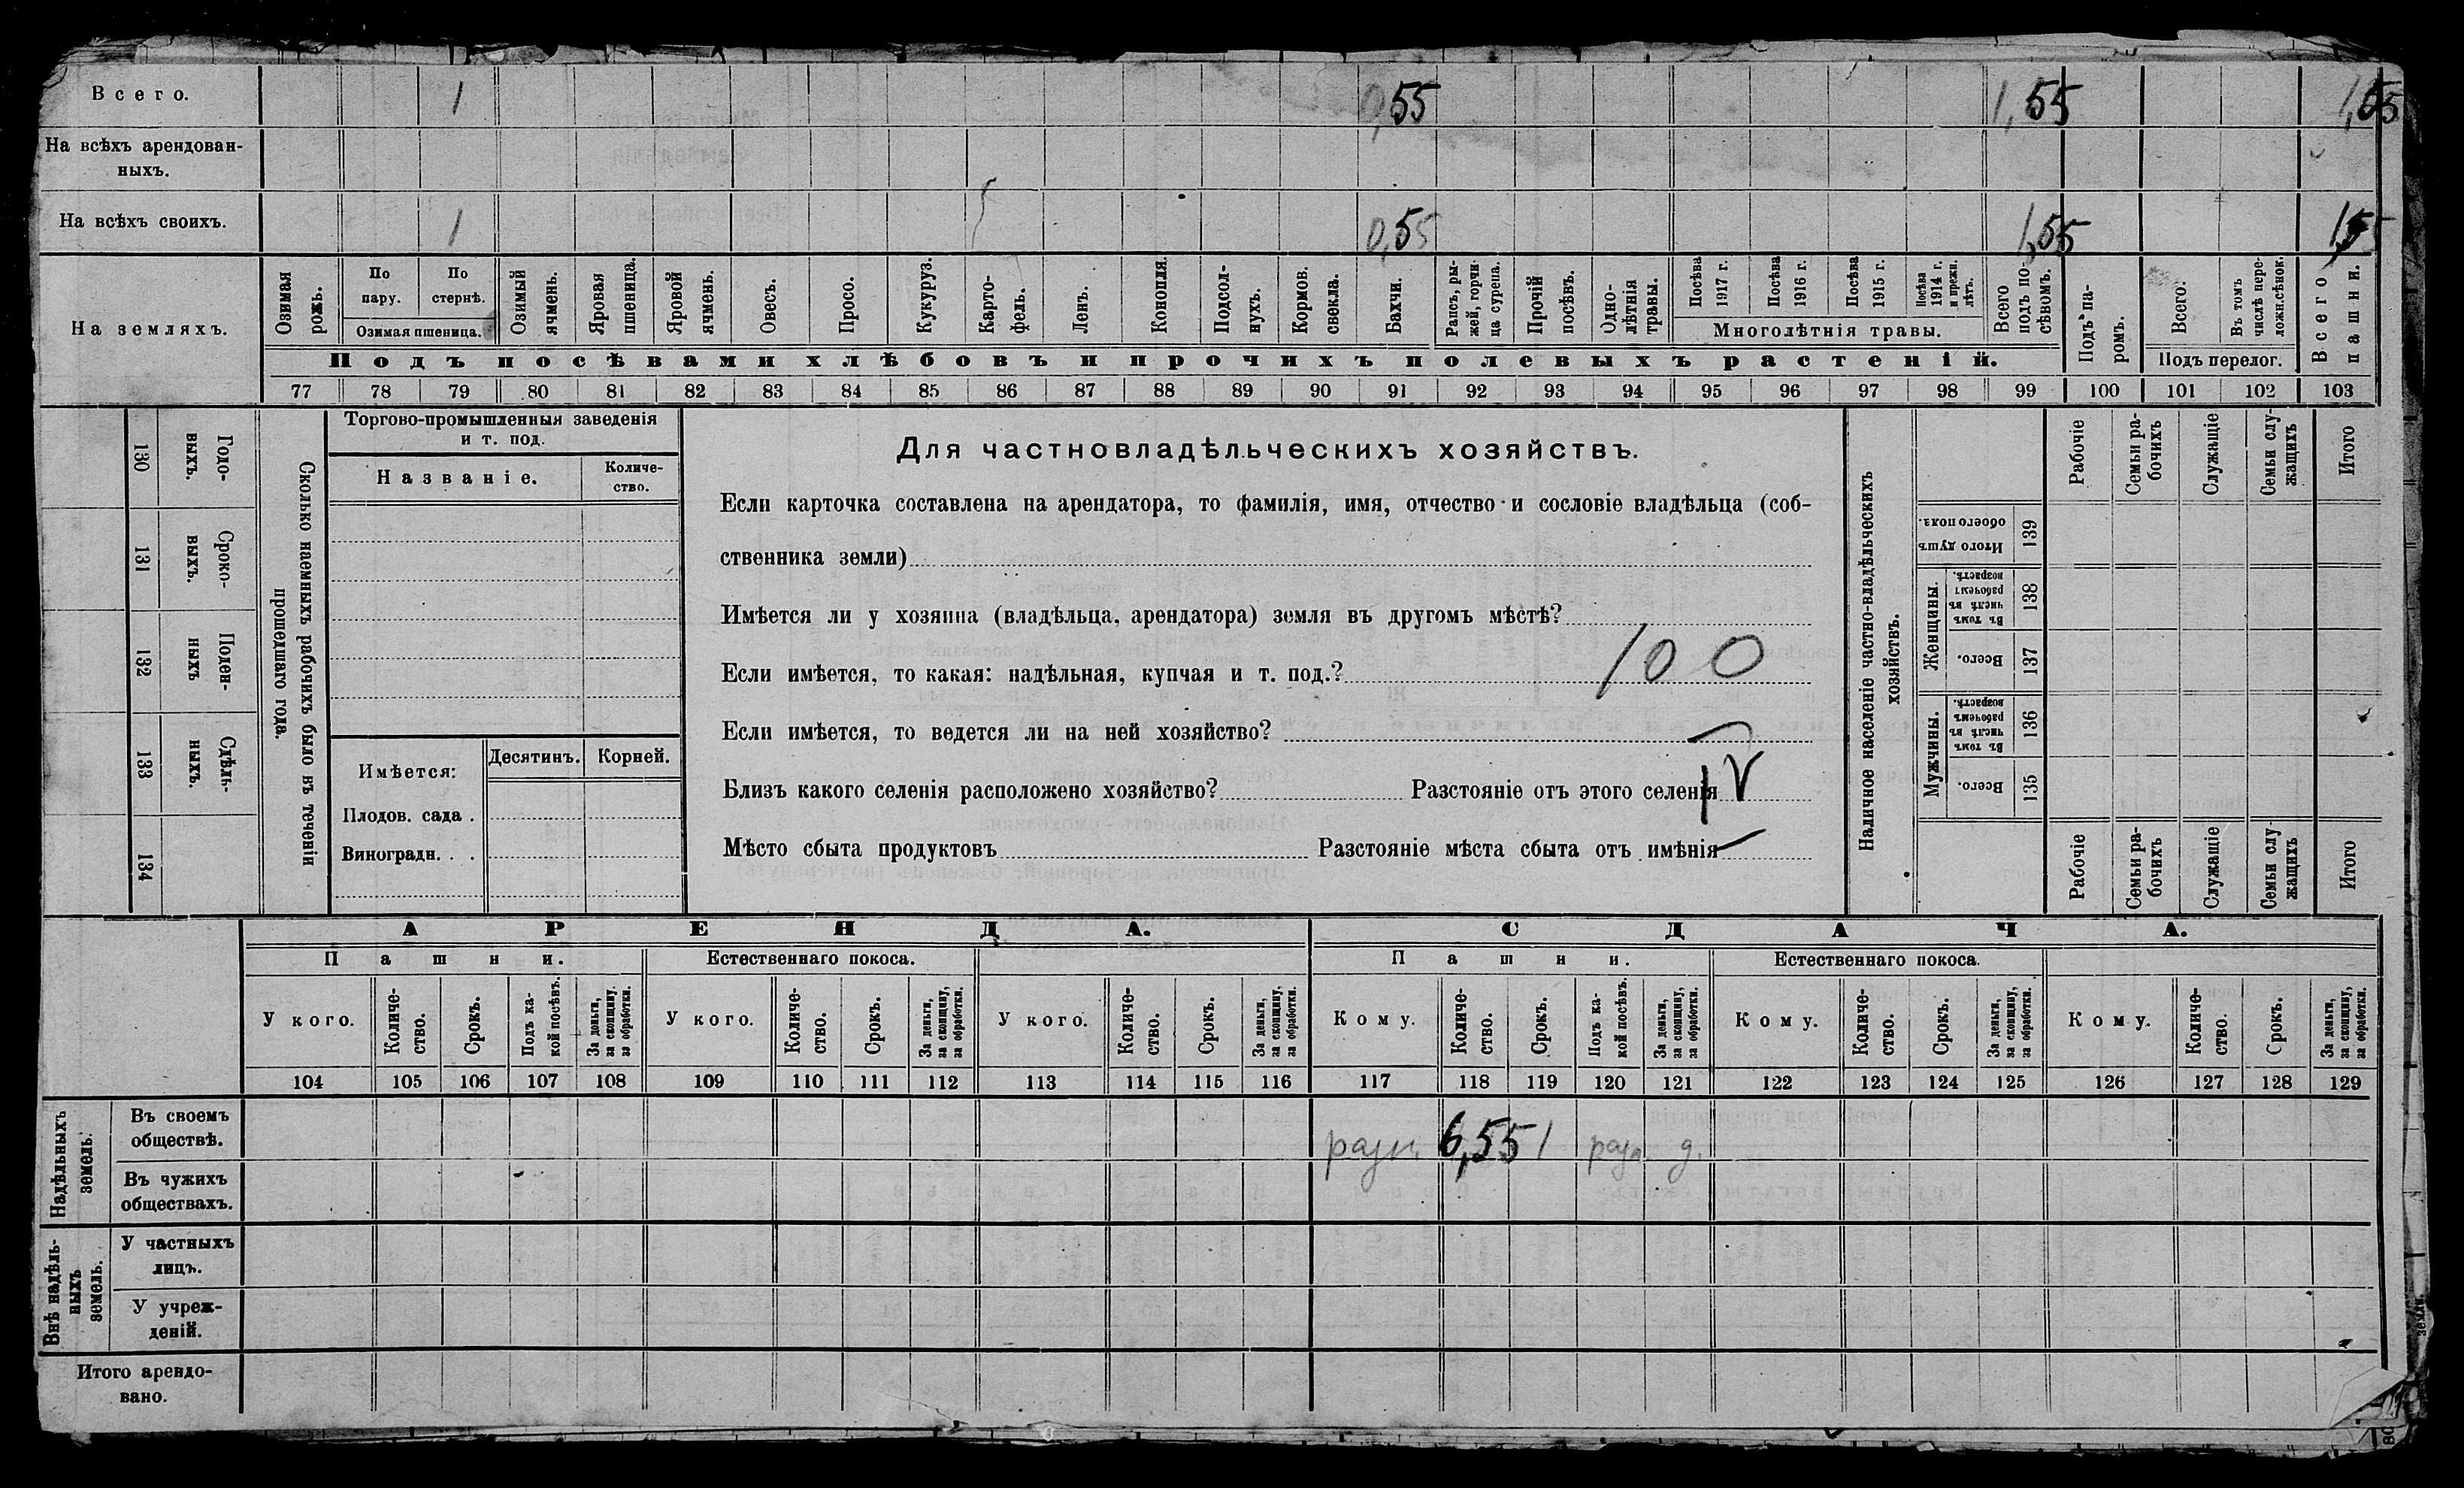 Всего. 1 0,55 1,55 1,55
На всѣхъ арендован-
ныхъ.
На всѣхъ своихъ. 1 0,55 1,55 1,55
На земляхъ.
Озимая рожь.
По пару.
По стернѣ.
Озимая пшеница.
Озимый ячмень.
Яровая пшеница.
Яровой ячмень.
Овесъ.
Просо.
Кукуруз.
Карто-
фель.
Ленъ.
Конопля.
Подсол-
нухъ.
Кормов. свекла.
Бахчи.
Рапсъ, ры-
жей, горчи
ца сурепа.
Прочій посѣвъ.
Одно-
лѣтнія
травы.
Посѣва 1917 г.
Посѣва 1916 г.
Посѣва 1915 г.
Посѣва 1914 г. и прежн. лѣтъ.
Многолѣтнія травы.
Всего подъ по-
сѣвомъ.
Подъ посѣвами хлѣбовъ и прочихъ полевыхъ растеній.
Подъ па-
ромъ.
Всего.
Въ томъ числѣ пере-
ложн.сѣнок.
Подъ перелог.
Всего пашни.
77 78 79 80 81 82 83 84 85 86 87 88 89 90 91 92 93 94 95 96 97 98 99 100 101 102 103
130 Годо-
выхъ.
131 Сроко-
выхъ.
132 Поден-
ныхъ
133 Сдѣль-
ныхъ.
134
Сколько наемныхъ рабочихъ было въ теченіи
прошедшаго года.
Торгово-промышленныя заведенія
и т. под.
Названіе.
Количе-
ство.
Имѣется: Десятинъ. Корней.
Плодов. сада .
Виноградн. . .
Для частновладѣльческихъ хозяйствъ.
Если карточка составлена на арендатора, то фамилія, имя, отчество и сословіе владѣльца (соб-
ственника земли)
Имѣется ли у хозяина (владѣльца, арендатора) земля въ другомъ мѣстѣ?
Если имѣется, то какая: надѣльная, купчая и т. под.? 100
Если имѣется, то ведется ли на ней хозяйство?
Близъ какого селенія расположено хозяйство? Разстояніе отъ этого селенія IV
Мѣсто сбыта продуктовъ Разстояніе мѣста сбыта отъ имѣнія
Наличное населеніе частно-владѣльческихъ
хозяйствъ.
Рабочіе
Семьи ра-
бочихъ
Служащіе
Семьи слу-
жащихъ
Итого
Итого душъ обоего пола. 139
Женщины.
Въ томъ числѣ въ рабочемъ возрастѣ. 138
Всего. 137
Мужчины.
Въ томъ числѣ въ рабочемъ возрастѣ. 136
Всего. 135
Рабочіе
Семьи ра-
бочихъ
Служащіе
Семьи слу-
жащихъ
Итого
АРЕНДА. СДАЧА.
Пашни. Естественнаго покоса. Пашни. Естественнаго покоса.
У кого. Количе-
ство. Срокъ. Подъ ка-
кой посѣвъ. За деньги,
за скопщину,
за обработки.
У кого. Количе-
ство. Срокъ. За деньги,
за скопщину,
за обработки.
У кого. Количе-
ство. Срокъ. За деньги,
за скопщину,
за обработки.
Кому. Количе-
ство. Срокъ. Подъ ка-
кой посѣвъ. За деньги,
за скопщину,
за обработки.
Кому. Количе-
ство. Срокъ. За деньги,
за скопщину,
за обработки.
Кому. Количе-
ство. Срокъ. За деньги,
за скопщину,
за обработки.
104 105 106 107 108 109 110 111 112 113 114 115 116 117 118 119 120 121 122 123 124 125 126 127 128 129
Надѣльныхъ
земель.
Въ своемъ
обществѣ. 6,55 1 д.
Въ чужихъ
обществахъ.
Внѣ надѣль-
ныхъ
земель.
У частныхъ
лицъ.
У учреж-
деній.
Итого арендо-
вано.